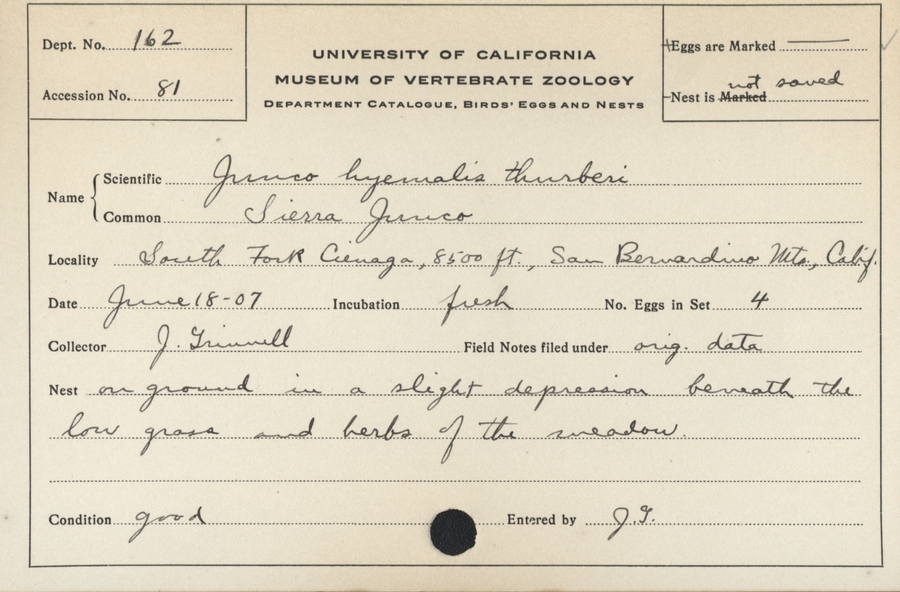 Dept. No. 162
Accession No. 81
UNIVERSITY OF CALIFORNIA
MUSEUM OF VERTEBRATE ZOOLOGY
DEPARTMENT CATALOGUE, BIRDS' EGGS AND NESTS
Eggs are Marked ——
not saved
Nest is Marked
Name
Scientific Junco hyemalis thurberi
Common Sierra Junco
Locality South Fork Cienaga, 8500 ft., San Bernardino Mts., Calif.
Date June 18-07 Incubation fresh No. Eggs in Set 4
Collector J. Grinnell Field Notes filed under orig. data
Nest on ground in a slight depression beneath the
low grass and herbs of the meadow.
Condition good Entered by J.G.